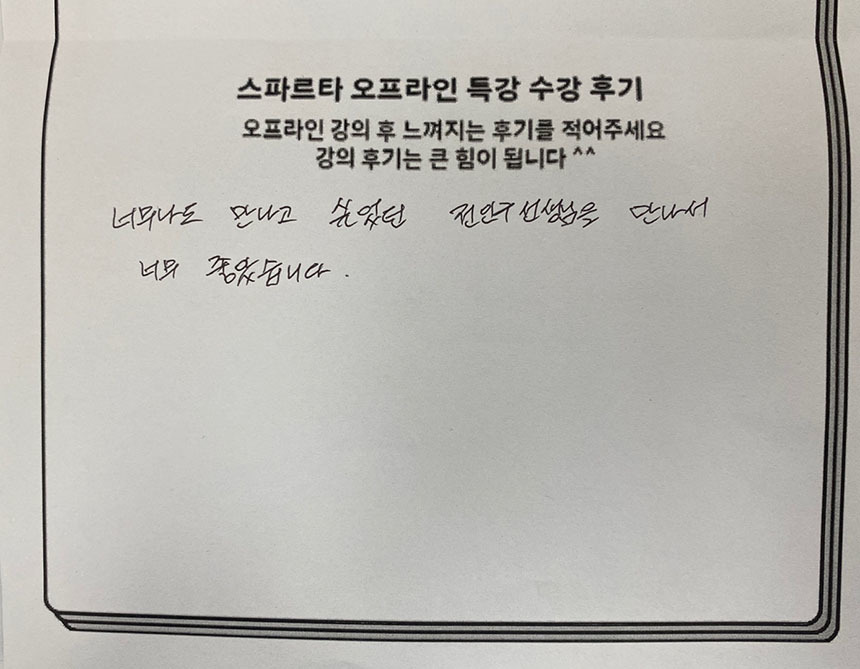 스파르타 오프라인 특강 수강 후기
오프라인 강의 후 느껴지는 후기를 적어주세요
강의 후기는 큰 힘이 됩니다 ^^
너무나도 만나고 싶었던 전한구선생님을 만나서
너무 좋았습니다.